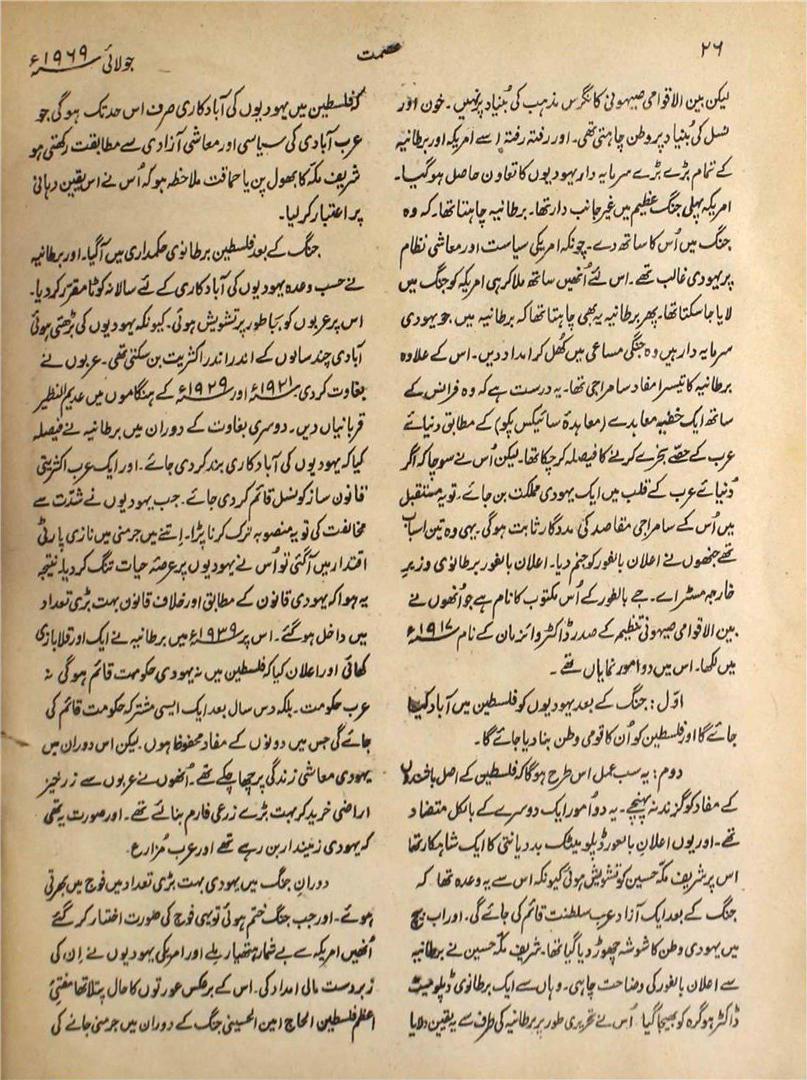 ۲۶
عصمت
جولائی ۱۹۶۹ء
لیکن بین الاقوامی صیہونی کانگرس مذہب کی بُنیاد پر نہیں۔ خون اور
نسل کی بُنیاد پر وطن چاہتی تھی۔ اور رفتہ رفتہ اسے امریکہ اور برطانیہ
کے تمام بڑے بڑے سرمایہ دار یہودیوں کا تعاون حاصل ہو گیا۔
امریکہ پہلی جنگ عظیم میں غیر جانب دار تھا۔ برطانیہ چاہتا تھا۔ کہ وہ
جنگ میں اُس کا ساتھ دے۔ چونکہ امریکی سیاست اور معاشی نظام
پر یہودی غالب تھے۔ اس لئے اُنھیں ساتھ ملا کر ہی امریکہ کو جنگ میں
لایا جا سکتا تھا۔ پھر برطانیہ یہ بھی چاہتا تھا کہ برطانیہ میں جو یہودی
سرمایہ دار ہیں وہ جنگی مساعی میں کُھل کر امداد دیں۔ اس کے علاوہ
برطانیہ کا تیسرا مفاد سامراجی تھا۔ یہ درست ہے کہ وہ فرانس کے
ساتھ ایک خفیہ معاہدے (معاہدۂ سائیکس پکو) کے مطابق دنیائے
عرب کے حصّے بخرے کرنے کا فیصلہ کر چکا تھا۔ لیکن اُس نے سوچا کہ اگر
دُنیائے عرب کے قلب میں ایک یہودی مملکت بن جائے۔ تو یہ مستقبل
میں اُس کے سامراجی مقاصد کی مددگار ثابت ہو گی۔ یہی وہ تین اسباب
تھے جنھوں نے اعلان بالفور کو جنم دیا۔ اعلان بالفور برطانوی وزیرِ
خارجہ مسٹر اے۔ جے بالفور کے اُس مکتوب کا نام ہے جو اُنھوں نے
بین الاقوامی صیہونی تنظیم کے صدر ڈاکٹر وائزمان کے نام ۱۹۱۷ء
میں لکھا۔ اس میں دو امور نمایاں تھے۔
اوّل: جنگ کے بعد یہودیوں کو فلسطین میں آباد کیا
جائے گا اور فلسطین کو اُن کا قومی وطن بنا دیا جائے گا۔
دوم: یہ سب عمل اس طرح ہوگا کہ فلسطین کے اصل باشندوں
کے مفاد کو گزند نہ پہنچے۔ یہ دو اُمور ایک دوسرے کے بالکل متضاد
تھے۔ اور یوں اعلانِ بالفور ڈپلومیٹک بددیانتی کا ایک شاہکار تھا
اس پر شریف مکّہ حسین کو تشویش ہوئی کیونکہ اس سے یہ وعدہ تھا کہ
جنگ کے بعد ایک آزاد عرب سلطنت قائم کی جائے گی۔ اور اب بیچ
میں یہودی وطن کا شوشہ چھوڑ دیا گیا تھا۔ شریف مکّہ حسین نے برطانیہ
سے اعلان بالفور کی وضاحت چاہی۔ وہاں سے ایک برطانوی ڈپلومیٹ
ڈاکٹر ہوگرہ کو بھیجا گیا اُس نے تحریری طور پر برطانیہ کی طرف سے یہ یقین دلایا
کہ فلسطین میں یہودیوں کی آبادکاری صرف اس حد تک ہو گی جو
عرب آبادی کی سیاسی اور معاشی آزادی سے مطابقت رکھتی ہو
شریف مکّہ کا بھول پن یا حماقت ملاحظہ ہو کہ اُس نے اس یقین دہانی
پر اعتبار کر لیا۔
جنگ کے بعد فلسطین برطانوی حکمداری میں آ گیا۔ اور برطانیہ
نے حسب وعدہ یہودیوں کی آبادکاری کے لئے سالانہ کوٹا مقرّر کر دیا۔
اس پر عربوں کو بجا طور پر تشویش ہوئی۔ کیونکہ یہودیوں کی بڑھتی ہوئی
آبادی چند سالوں کے اندر اندر اکثریت بن سکتی تھی۔ عربوں نے
بغاوت کر دی۔ ۱۹۲۱ء اور ۱۹۲۹ء کے ہنگاموں میں عدیم النظیر
قربانیاں دیں۔ دوسری بغاوت کے دوران میں برطانیہ نے فیصلہ
کیا کہ یہودیوں کی آبادکاری بند کر دی جائے۔ اور ایک عرب اکثریتی
قانون ساز کونسل قائم کر دی جائے۔ جب یہودیوں نے شدّت سے
مخالفت کی تو یہ منصوبہ ترک کرنا پڑا۔ اِتنے میں جرمنی میں نازی پارٹی
اقتدار میں آ گئی تو اُس نے یہودیوں پر عرصۂ حیات تنگ کر دیا۔ نتیجہ
یہ ہوا کہ یہودی قانون کے مطابق اور خلاف قانون بہت بڑی تعداد
میں داخل ہو گئے۔ اس پر ۱۹۳۹ء میں برطانیہ نے ایک اور قلابازی
کھائی اور اعلان کیا کہ فلسطین میں نہ یہودی حکومت قائم ہو گی نہ
عرب حکومت۔ بلکہ دس سال بعد ایک ایسی مشترکہ حکومت قائم کی
جائے گی جس میں دونوں کے مفاد محفوظ ہوں۔ لیکن اس دوران میں
یہودی معاشی زندگی پر چھا چکے تھے۔ اُنھوں نے عربوں سے زرخیز
اراضی خرید کر بہت بڑے زرعی فارم بنائے تھے۔ اور صورت یہ تھی
کہ یہودی زمیندار بن رہے تھے اور عرب مُزارع۔
دورانِ جنگ میں یہودی بہت بڑی تعداد میں فوج میں بھرتی
ہوئے۔ اور جب جنگ ختم ہوئی تو یہی فوج کی صورت اختیار کر گئے
اُنھیں امریکہ سے بے شمار ہتھیار ملے اور امریکی یہودیوں نے اِن کی
زبردست مالی امداد کی۔ اس کے برعکس عورتوں کا حال پتلا تھا مفتیِ
اعظم فلسطین الحاج امین الحسینی جنگ کے دوران میں جرمنی جانے کی